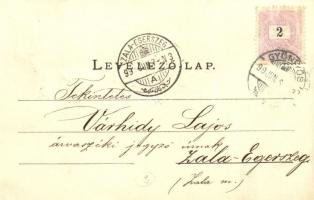 2
ZALA-EGERSZEG
LEVELEZŐ-LAP.
Tekintetes
Várhidy Lajos
árvaszéki jegyző úrnak
Zala-Egerszeg
(Zala m.)